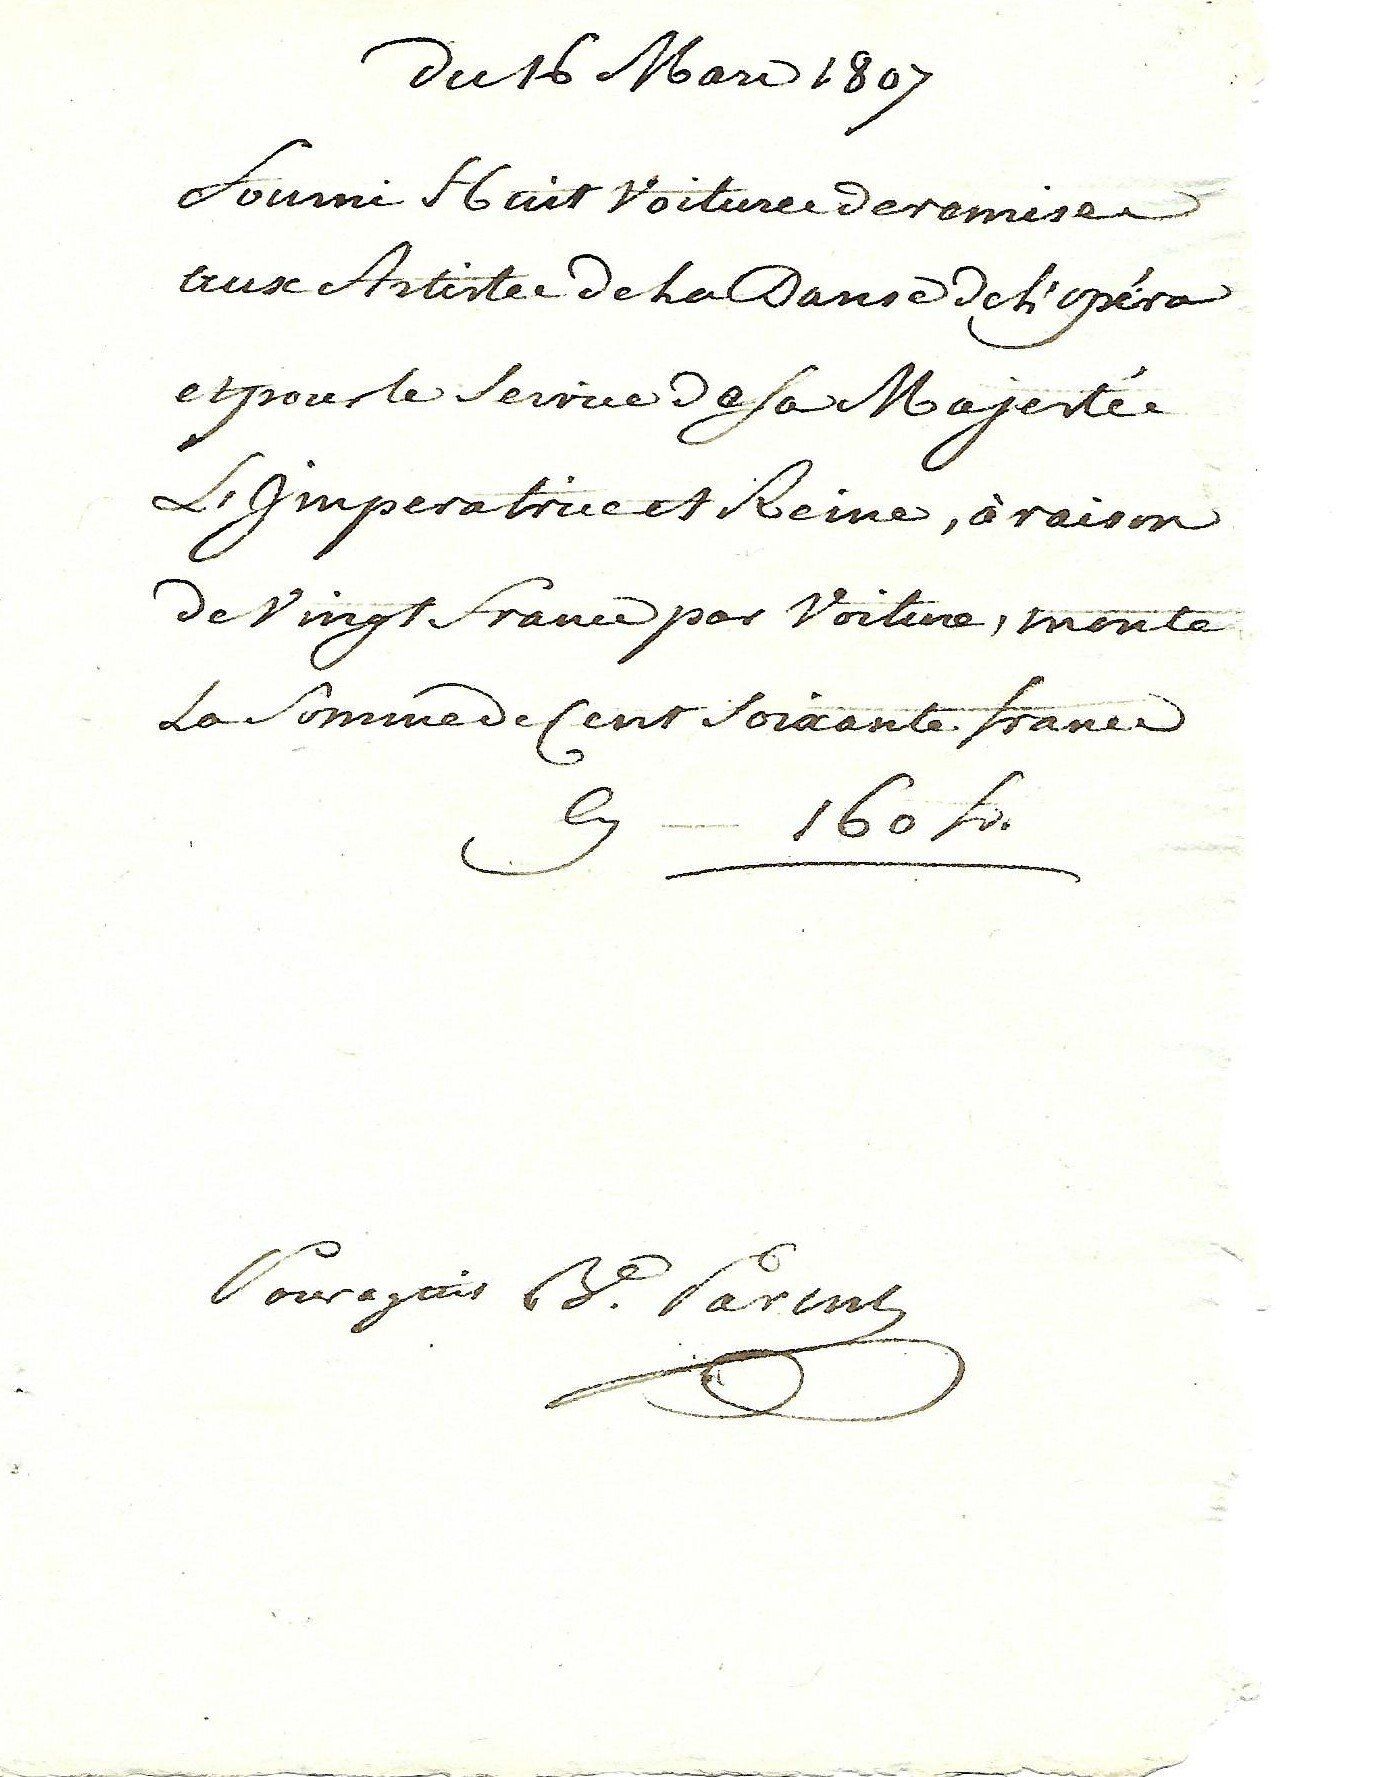 du 16 Mars 1807
Fourni Huit Voitures de remises
aux Artistes de La Danse de L'opéra
et pour le Service de sa Majestée
L'Jmperatrice et Reine, à raison
de Vingt francs par Voiture, monte
La Somme de Cent Soixante francs
Cy — 160 fr.
Pour aquis B.e Parent